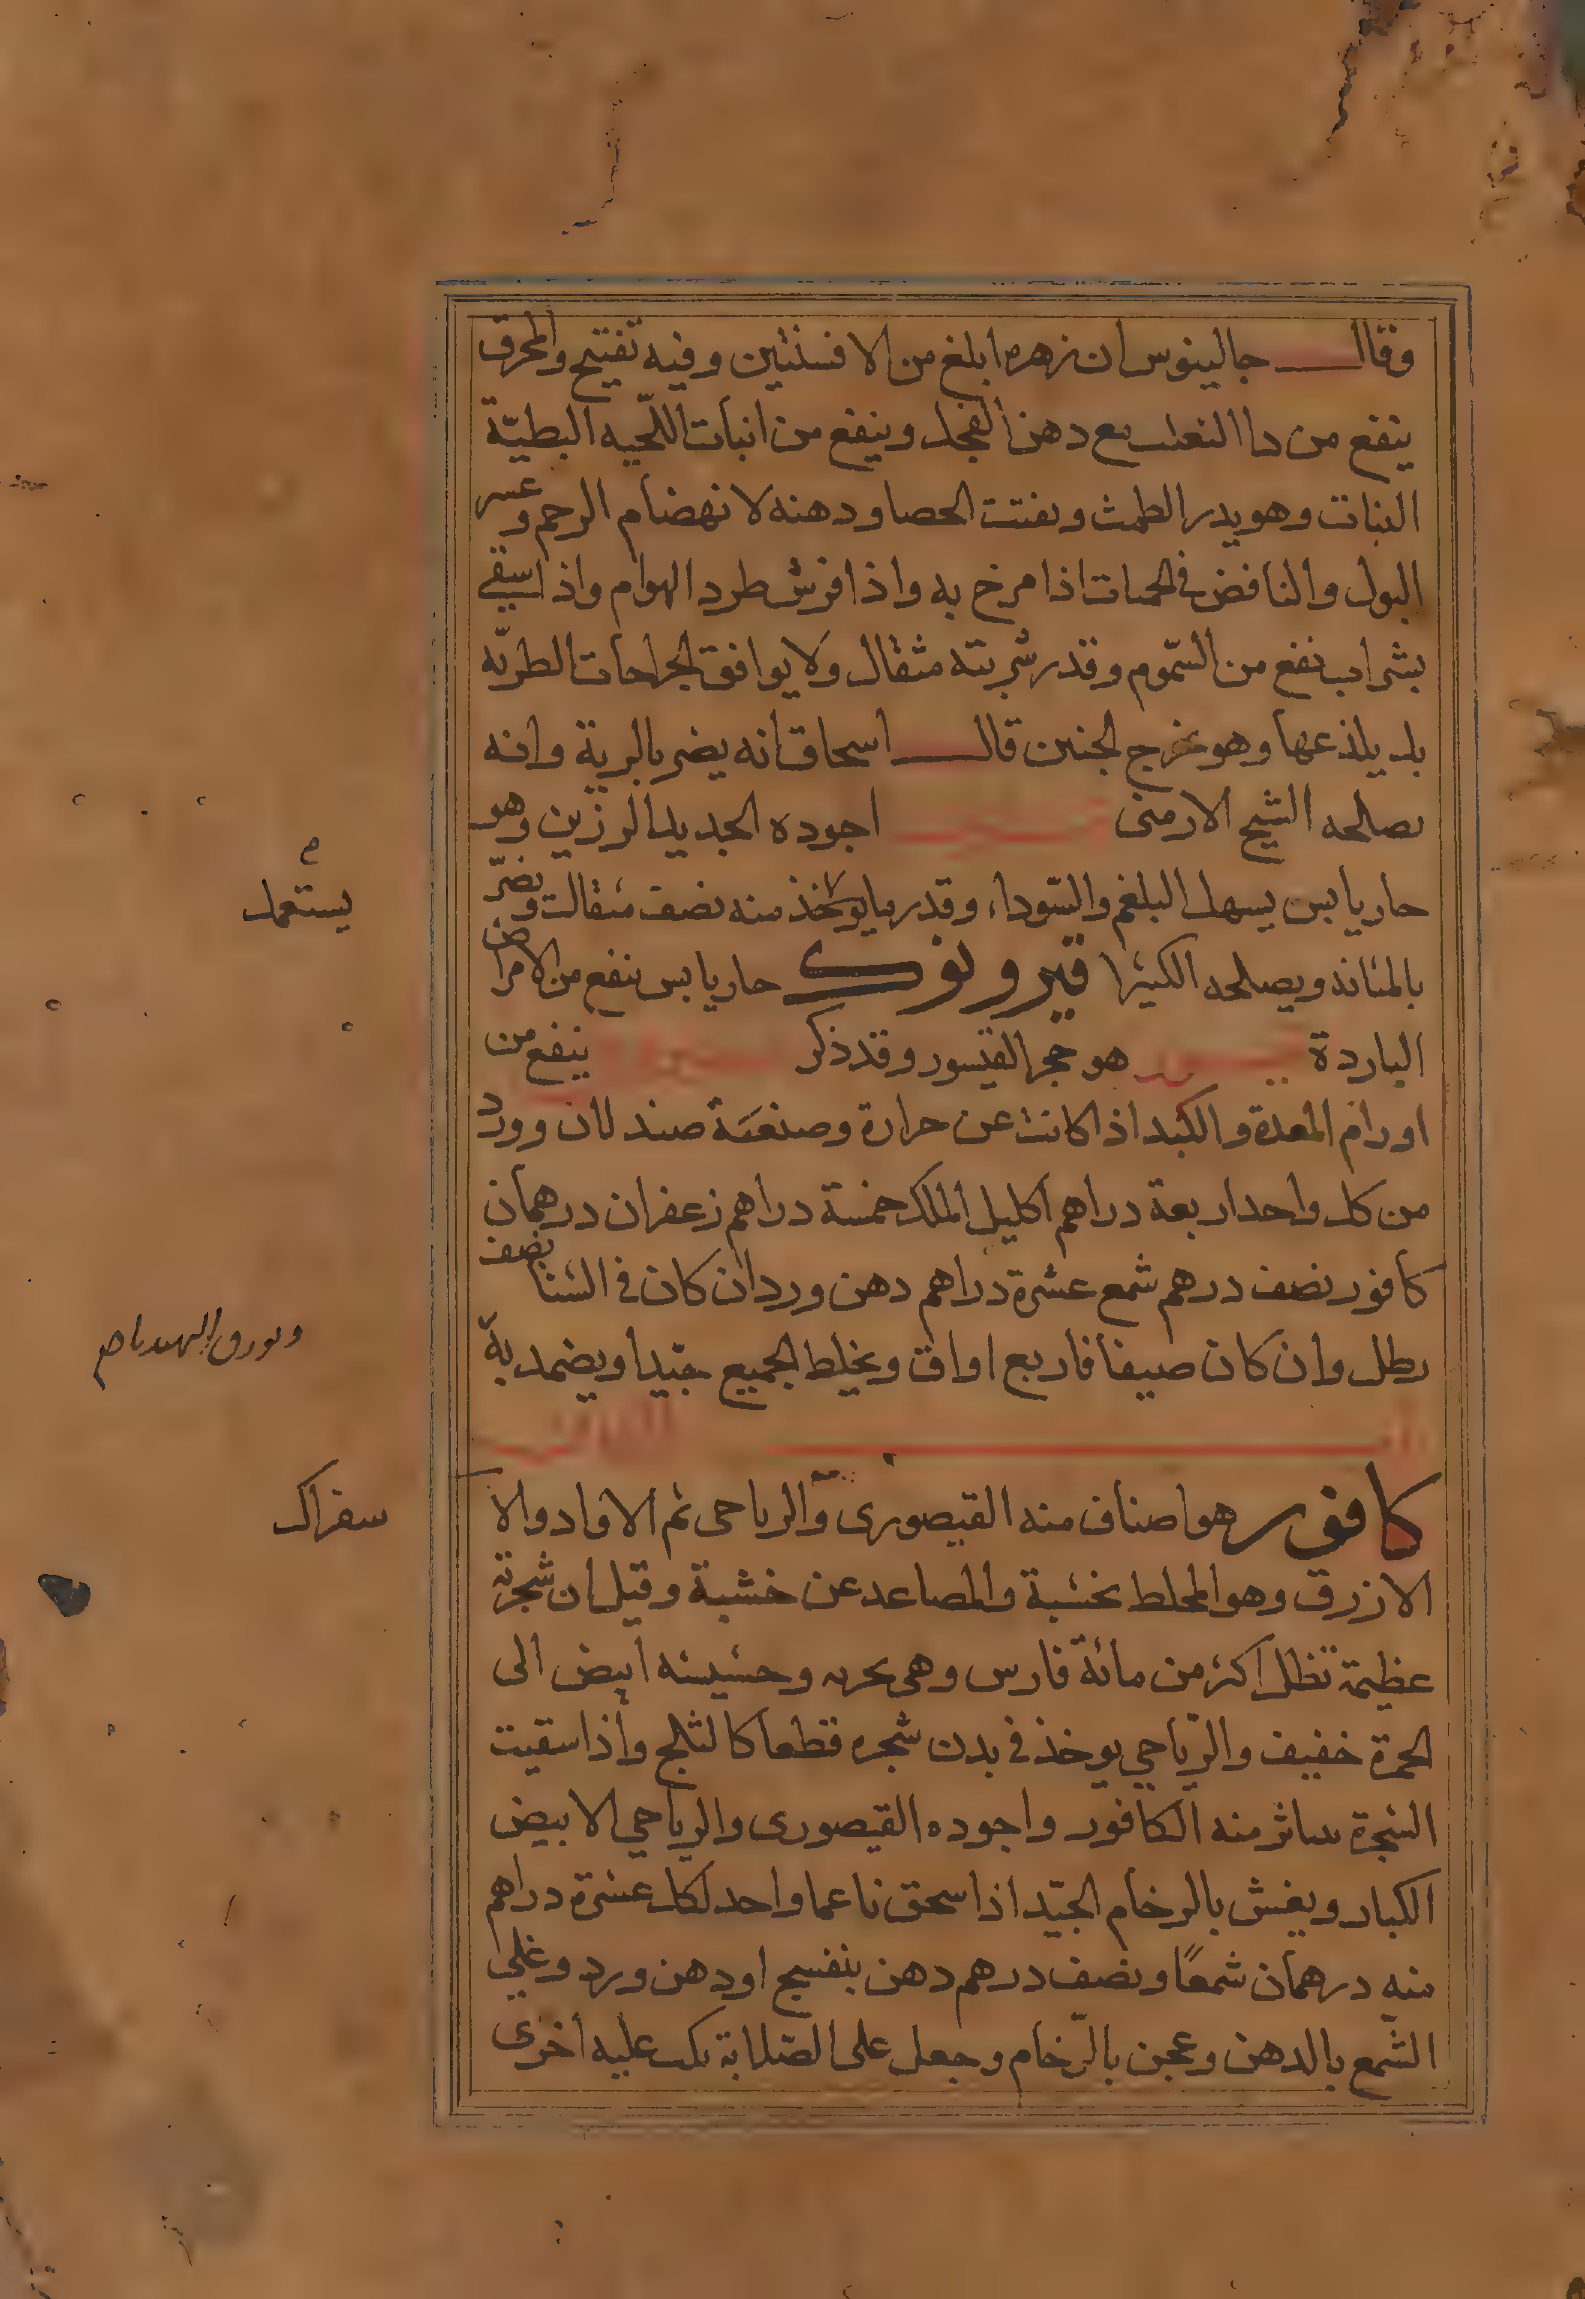 وقال جالينوس ان زهره ابلغ من الافسنتين وفيه تفتيح والمحرق
ينفع من دا الثعلب مع دهن الفجل وينفع من انبات اللحيه البطيّة
النبات وهو يدر الطمث ويفتت الحصا ودهنه لانهضام الرحم وعسر
البول والنافض في الحميات اذا مرخ به واذا افرش طرد الهوام واذا سقي
بشراب نفع من السّموم وقدر شربته مثقال ولا يوافق الجراحات الطريّه
بل يلذعها وهو يخرج الجنين قال اسحاق انه يضر بالرية وانه
يصلحه الشيح الارمنى اجوده الجديد الرزين وهو
حار يابس يسهل البلغم والسّوداء وقدر ما يوخذ منه نصف مثقال ويضرّ
بالمثانه ويصلحه الكثيرا حار يابس ينفع من الامراض
الباردة هو حجر القيسور وقد ذكر ينفع من
اورام المعدة والكبد اذا كانت عن حرارة وصنعته صندلان وورد
من كل واحد اربعة دراهم اكليل الملك خمسة دراهم زعفران درهمان
كافور نصف درهم شمع عشرة دراهم دهن ورد ان كان في الشتا نصف
رطل وان كان صيفا فاربع اواق ويخلط الجميع جيّدا ويضمد به
كافور هو اصناف منه القيصورى والرياحى ثم الازاد والا
الازرق وهو المخلط بخشبة والمصاعد عن خشبة وقيل ان شجرته
عظيمة تظلل اكثر من مائة فارس وهى بحريه وخشبه ابيض الى
الحمرة خفيف والرّياحي يوخذ في بدن شجره قطعا كالثلج واذا سقيت
الشجرة تناثر منه الكافور واجوده القيصورى والرياحي الابيض
الكبار ويغش بالرخام الجيّد اذا سحق ناعما واحد لكل عشرة دراهم
منه درهمان شمعًا ونصف درهم دهن بنفسج او دهن ورد وغلي
الشّمع بالدهن وعجن بالرّخام وجعل على الصّلابة عليه اخرى
يستعمل